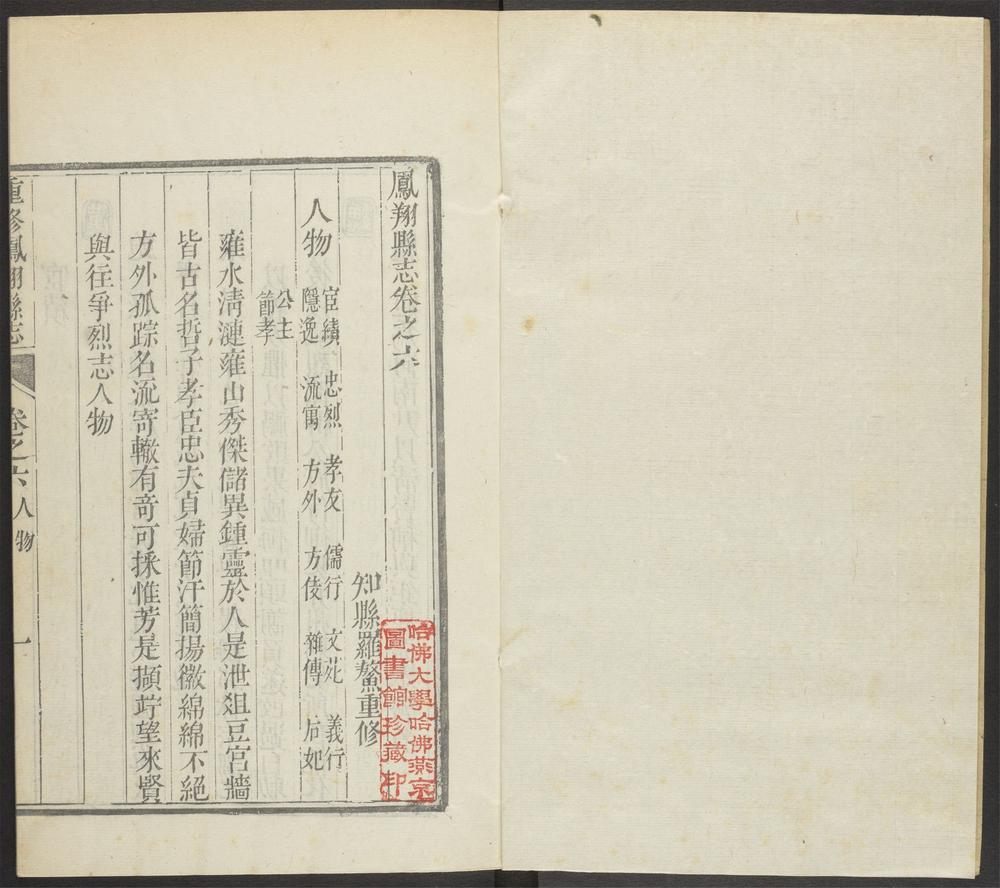 鳳翔縣志卷之六
知縣羅鰲重修
人物
宦績 忠烈 孝友 儒行 文苑 義行
隱逸 流寓 方外 方伎 雜傳 后妃
公主
節孝
雍水淸漣雍山秀傑儲異鍾靈於人是泄爼豆宮牆
皆古名哲子孝臣忠夫貞婦節汗簡揚徽綿綿不絕
方外孤踪名流寄轍有竒可採惟芳是擷竚望來賢
與往爭烈志人物
重修鳳翔縣志
卷之六人物
一
哈佛大學哈佛燕京
圖書館珍藏印